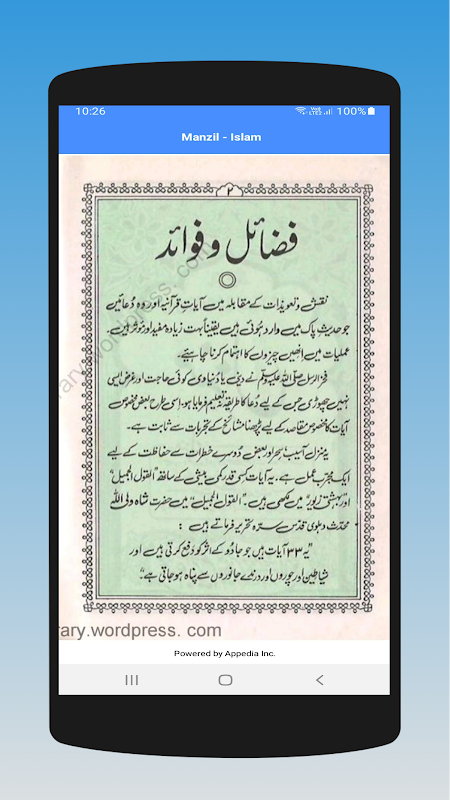 10:26
100%
Manzil - Islam
۲
فضائل و فوائد
نقش و تعویذات کے مقابلہ میں آیاتِ قرآنیہ اور وہ دُعائیں
جو حدیثِ پاک میں وارد ہُوئی ہیں یقیناً بہت زیادہ مفید اور مؤثر ہیں۔
عملیات میں انھیں چیزوں کا اہتمام کرنا چاہیئے۔
فخر الرسل صلی اللہ علیہ وسلم نے دینی یا دُنیاوی کوئی حاجت اور غرض ایسی
نہیں چھوڑی جس کے لیے دُعا کا طریقہ تعلیم نہ فرمایا ہو۔ اِسی طرح بعض مخصوص
آیات کا مخصوص مقاصد کے لیے پڑھنا مشائخ کے تجربات سے ثابت ہے۔
یہ منزل آسیب، سحر اور بعض دُوسرے خطرات سے حفاظت کے لیے
ایک مجرب عمل ہے۔ یہ آیات کسی قدر کمی بیشی کے ساتھ "القول الجمیل"
اور "بہشتی زیور" میں لکھی ہیں۔ "القول الجمیل" میں حضرت شاہ ولی اللہ
محدّث دہلوی قدّس سرّہ تحریر فرماتے ہیں :
"یہ ۳۳ آیات ہیں جو جادُو کے اثر کو دفع کرتی ہیں اور
شیاطین اور چوروں اور درندے جانوروں سے پناہ ہو جاتی ہے"۔
rary.wordpress. com
rary.wordpress. com
Powered by Appedia Inc.